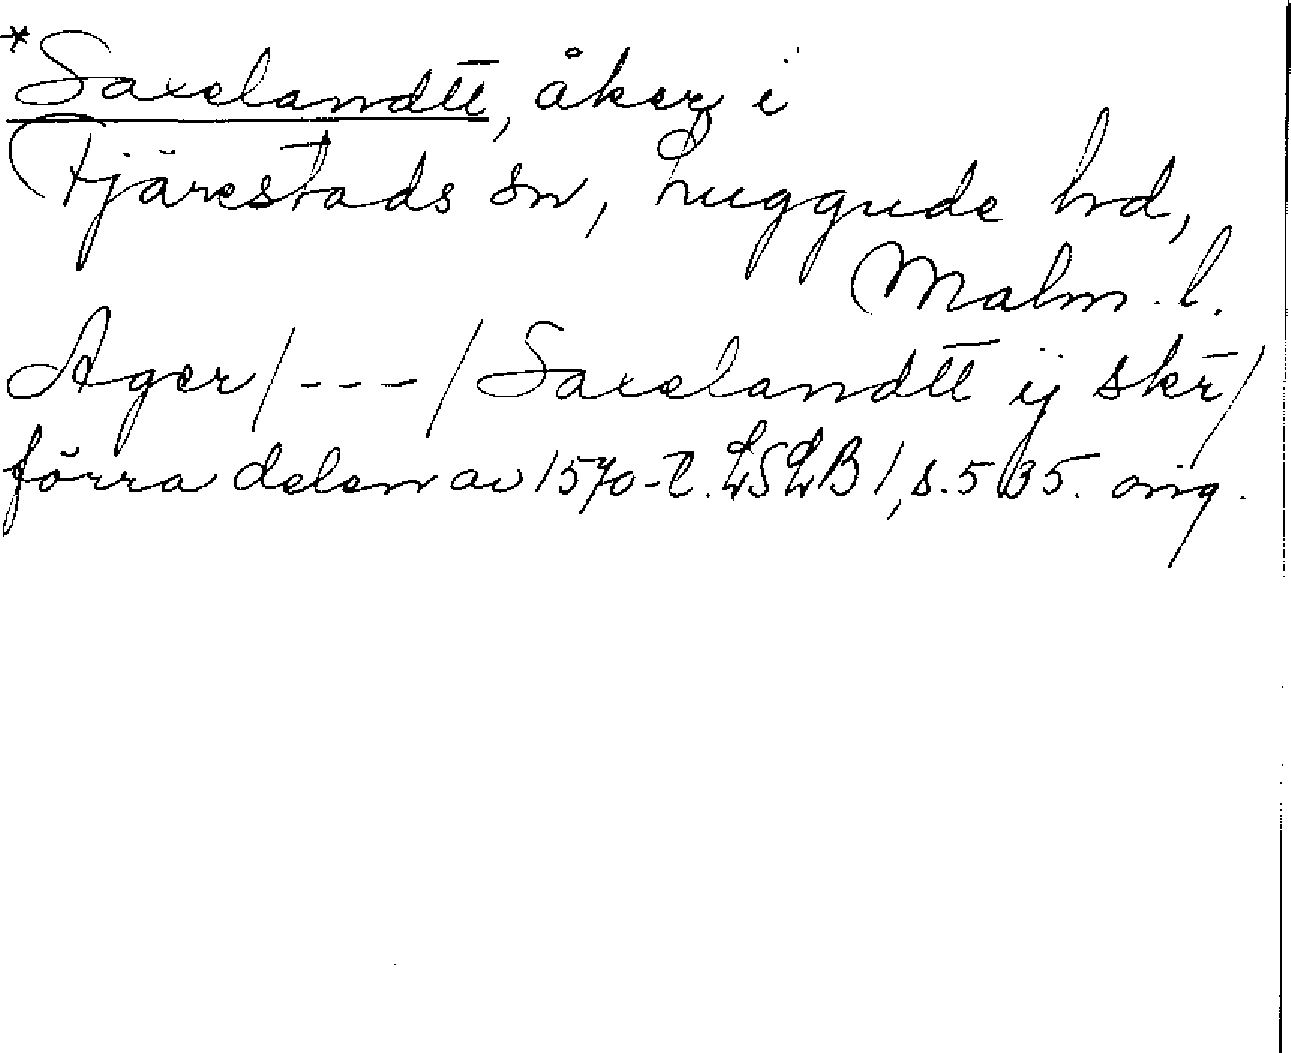 *Saxelandtt, åker i
Fjärestads sn, Luggude hd,
Malm. l.
Ager/---/Saxelandtt ij skr̄/
förra delen av 1570-t. LSLB 1, s. 535. orig.